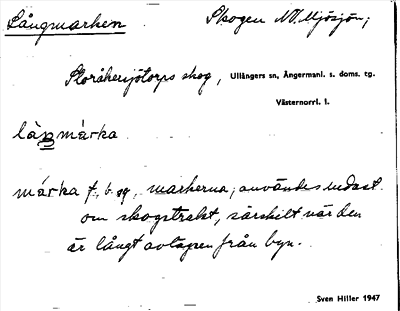 Långmarken Skogen NV. Mjösjön;
Storåkerisjötorps skog, Ullångers sn, Ångermanl. s. doms. tg.
Västernorrl. l.
làŋmárka
márka f., b. sg. markerna; användes endast
om skogstrakt, särskilt när den
är långt avlägsen från byn.
Sven Hiller 1947